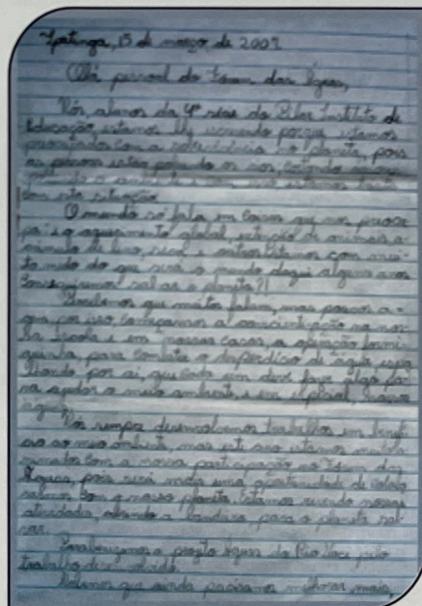 Ipatinga, 15 de março de 2007
Olá pessoal do Fórum das Águas,
Nós, alunos da 4ª série do Pilar Instituto de
Educação estamos escrevendo porque estamos
preocupados com a sobrevivência do planeta, pois
as pessoas estão poluindo os rios,
poluindo o ambiente e
com esta situação.
O mundo só fala em coisas que nos preocu
pa: é o aquecimento global, extinção de animais, a
de lixo, seca e outros. Estamos com mui
to medo do que será o mundo daqui alguns anos.
Conseguiremos salvar o planeta?!
Sabemos que muitos falam, mas poucos a
por isso, começamos a conscientização na nos
sa Escola e em nossas casas, a operação formi
guinha, para combater o desperdício de água,
por aí, que cada um deve fazer algo pa
ra ajudar o meio ambiente, e em especial, a nossa
água.
Nós sempre desenvolvemos trabalhos em
ao meio ambiente, mas este ano estamos muito
animados com a nossa participação no Fórum das
Águas, pois será mais uma oportunidade de
com o nosso planeta. Estamos
atividade, a bandeira para o planeta sal
var.
Parabenizamos o projeto Águas do Rio Doce pelo
trabalho desenvolvido.
Sabemos que ainda precisamos melhorar mais,